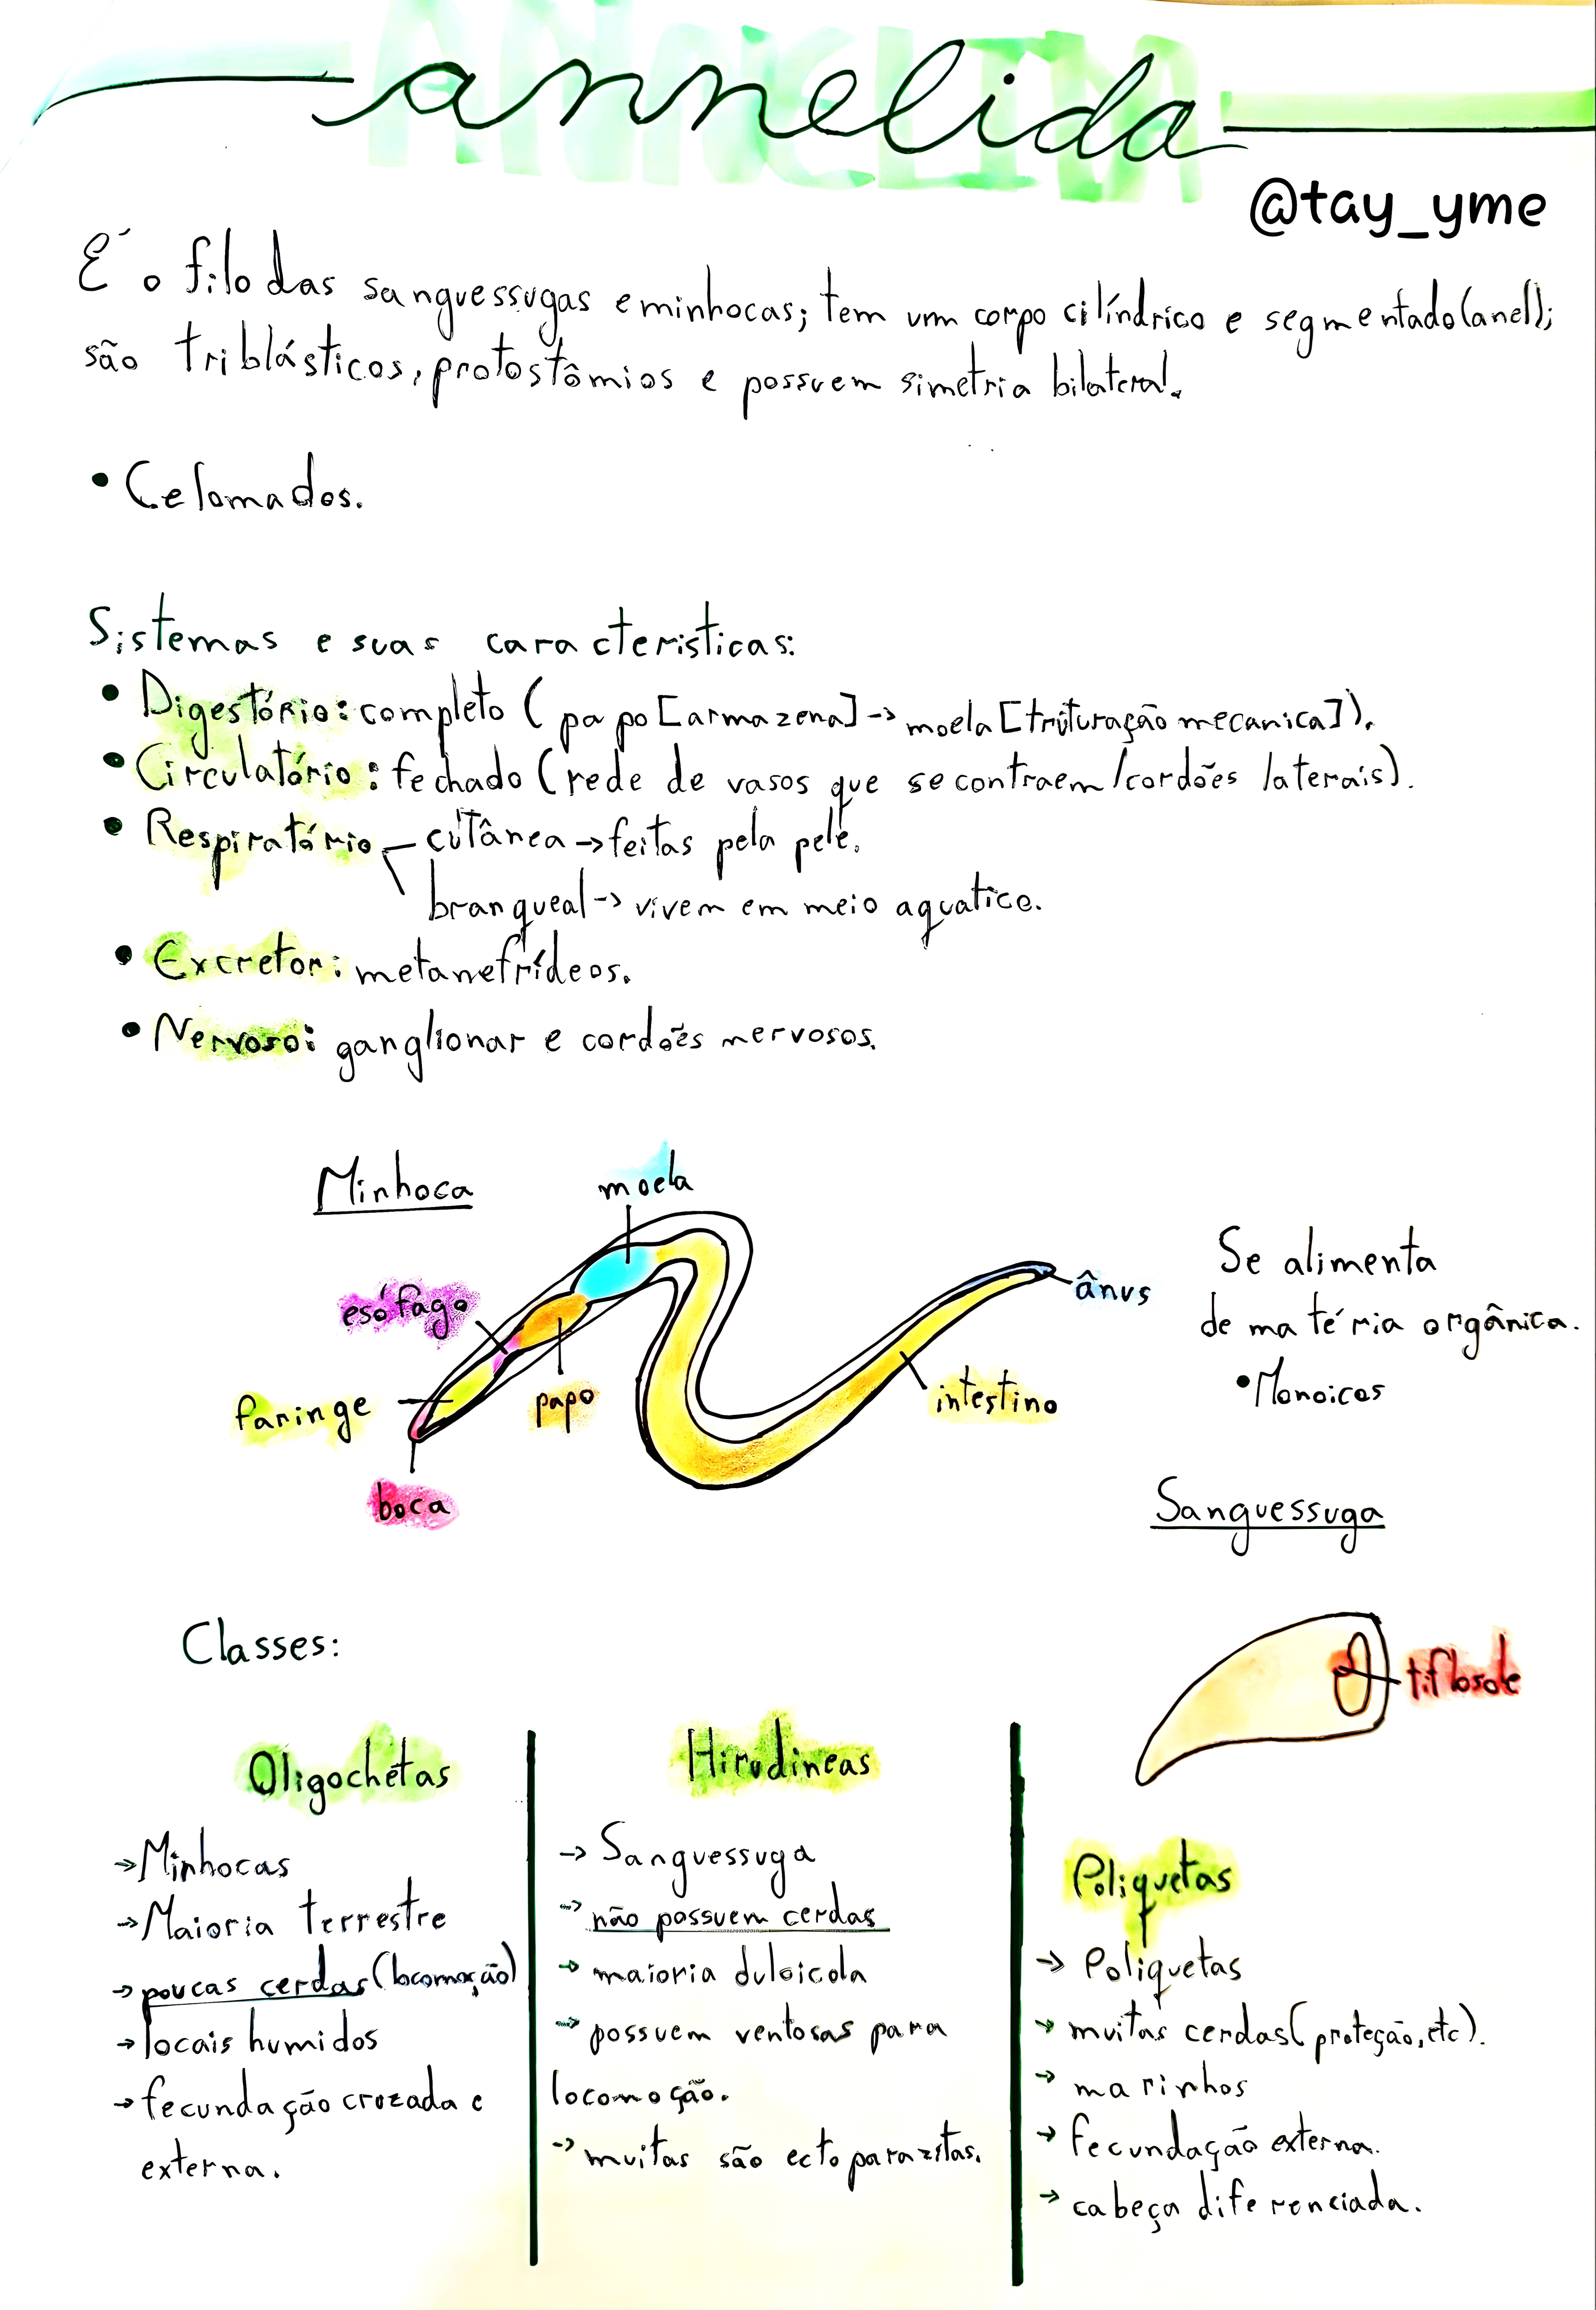 annelida
@tay_yme
É o filo das sanguessugas e minhocas; tem um corpo cilíndrico e segmentado (anel);
são triblásticos, protostômios e possuem simetria bilateral.
• Celomados.
Sistemas e suas caracteristicas:
• Digestório: completo (papo [armazena] -> moela [trituração mecanica]).
• Circulatório: fechado (rede de vasos que se contraem/cordões laterais).
• Respiratório cutânea -> feitas pela pele.
branqueal -> vivem em meio aquatico.
• Excretor: metanefrídeos.
• Nervoso: ganglionar e cordões nervosos.
Minhoca
moela
esófago
faringe
boca
papo
intestino
ânus
Se alimenta
de matéria orgânica.
• Monoicos
Sanguessuga
tiflosole
Classes:
Oligochetas
-> Minhocas
-> Maioria terrestre
-> poucas cerdas (locomoção)
-> locais humidos
-> fecundação cruzada e
externa.
Hirudineas
-> Sanguessuga
-> não possuem cerdas
-> maioria dulcicola
-> possuem ventosas para
locomoção.
-> muitas são ectoparazitas.
Poliquetas
-> Poliquetas
-> muitas cerdas (proteção, etc).
-> marinhos
-> fecundação externa.
-> cabeça diferenciada.